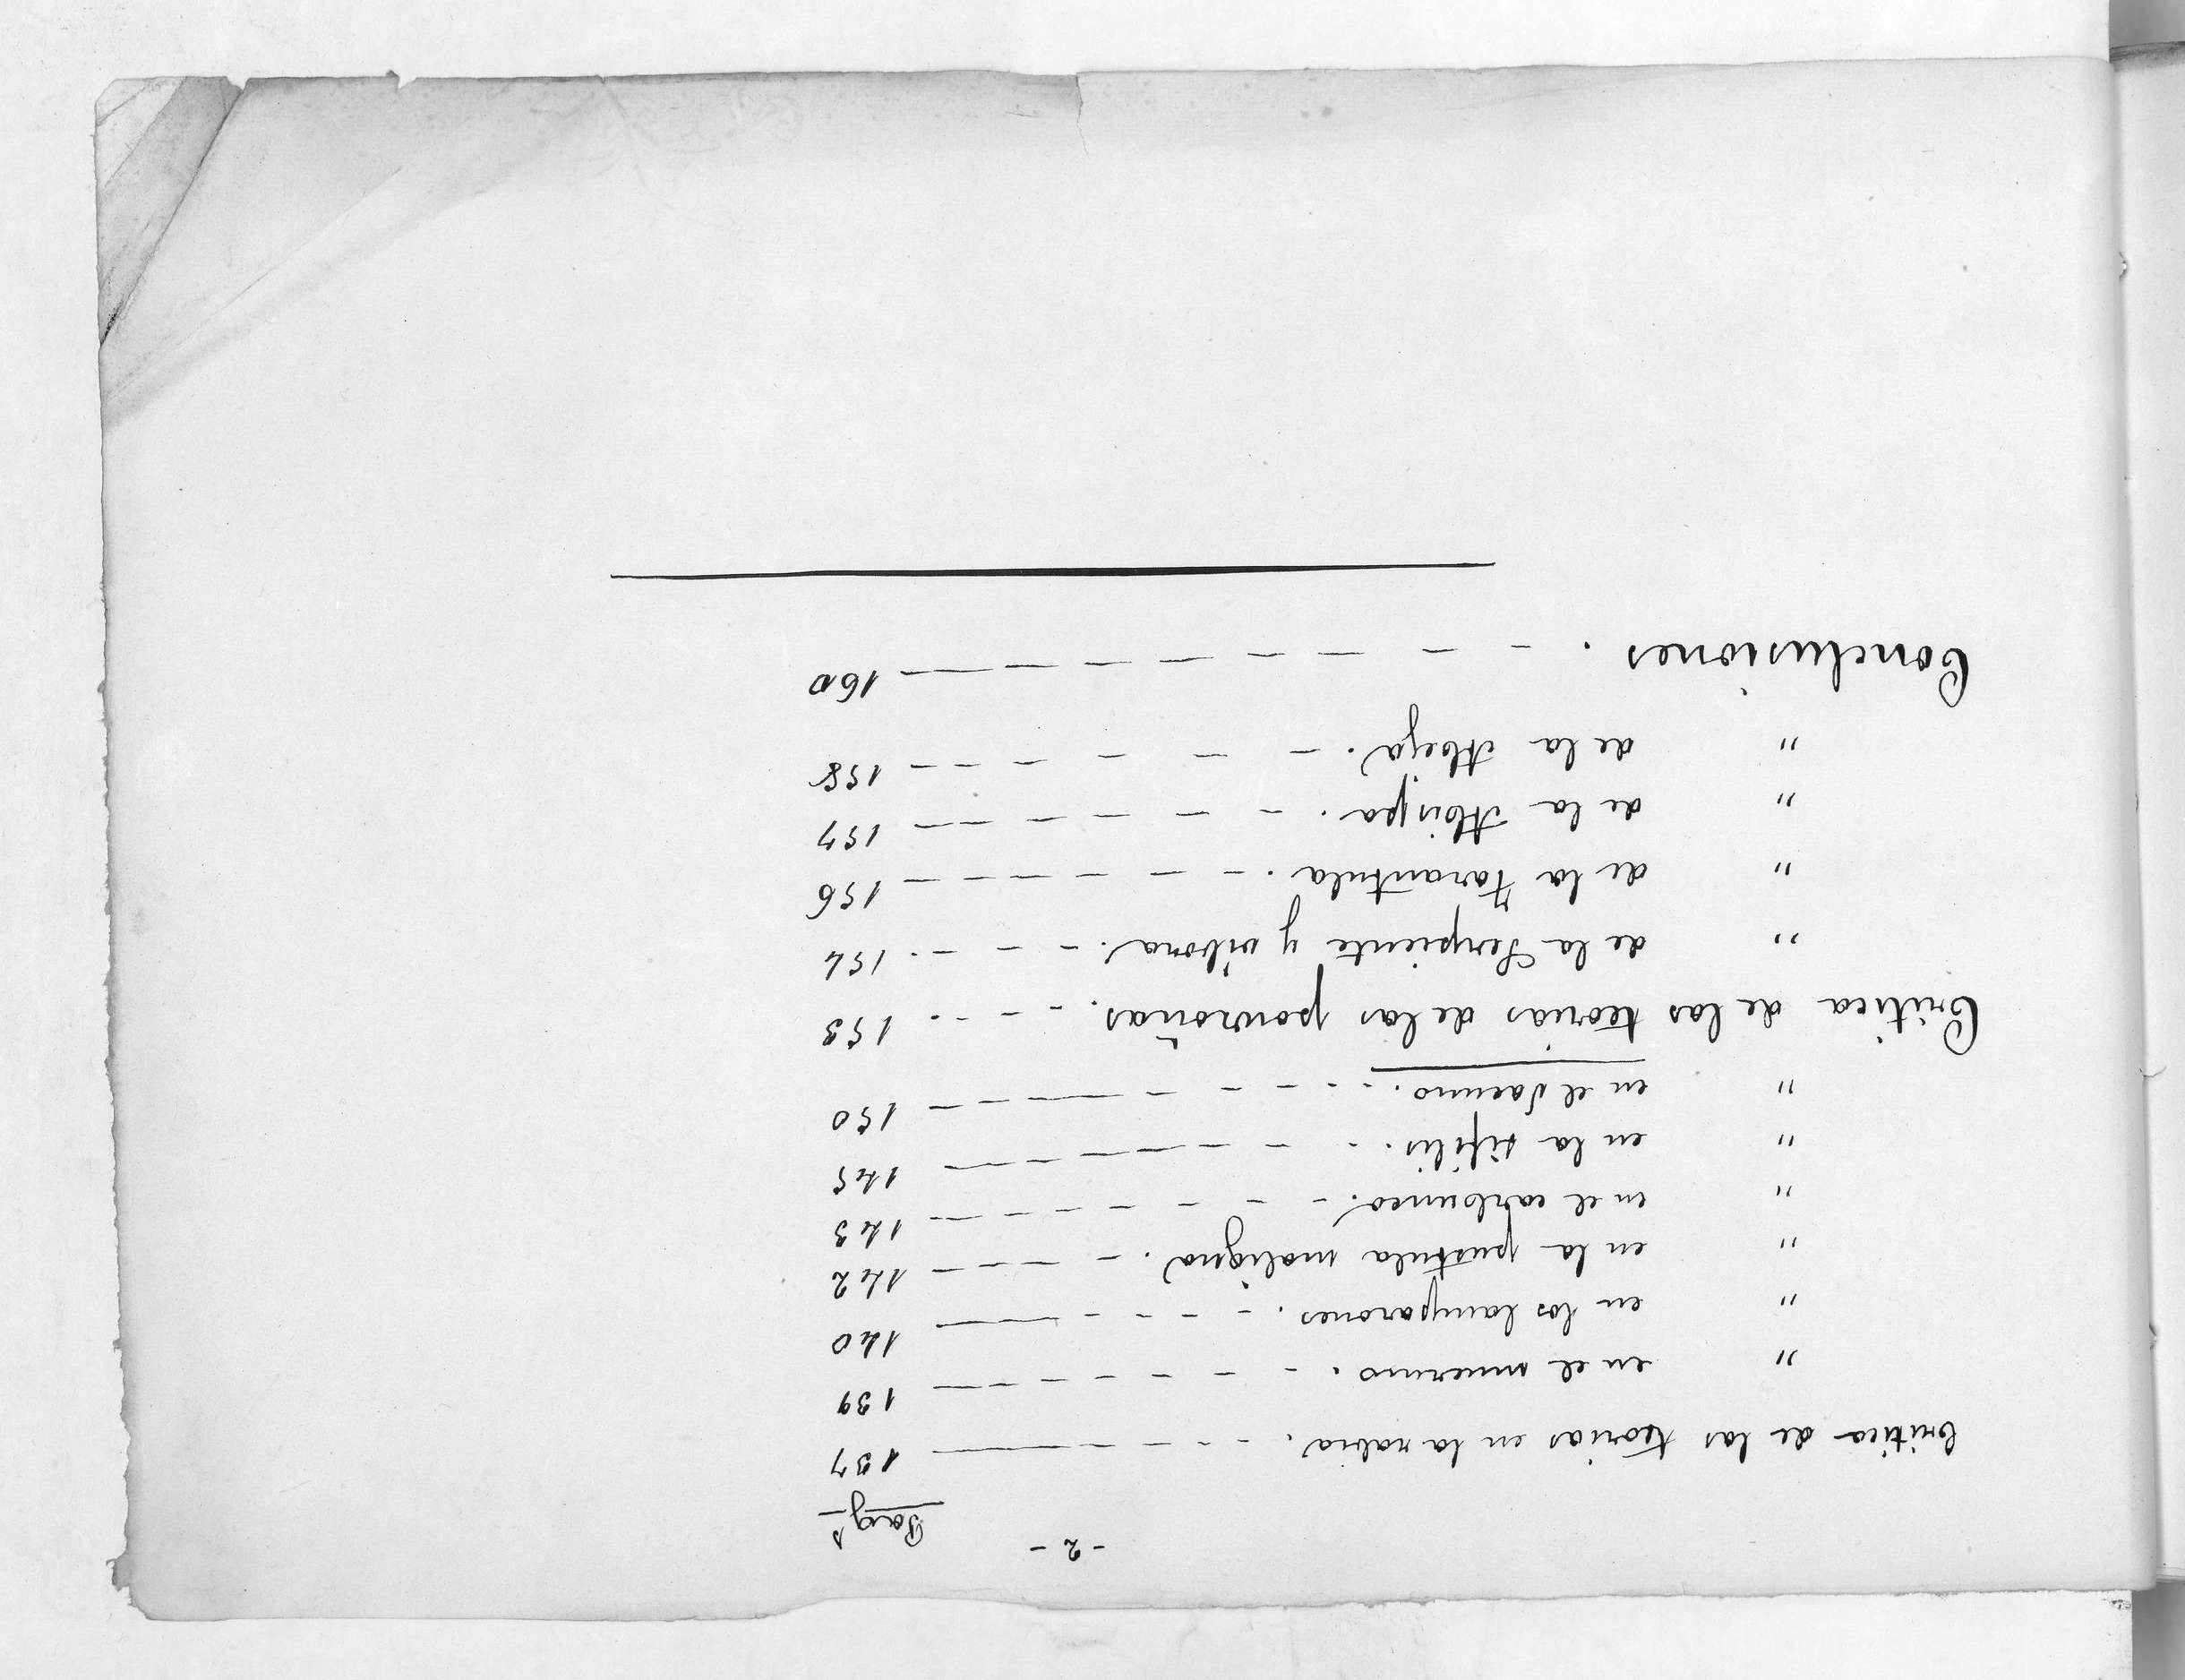 - 2 -
Pag.s
Critica de las teorias en la rabia. 137
" en el muermo. 139
" en los lamparones. 140
" en la pustula maligna. 142
" en el carbunco. 143
" en la sifilis. 145
" en el vacuno. 150
Critica de las teorias de las ponzoñas. 153
" de la Serpiente y vibora. 154
" de la tarantula. 156
" de la Abispa. 157
" de la Abeja. 158
Conclusiones. 160